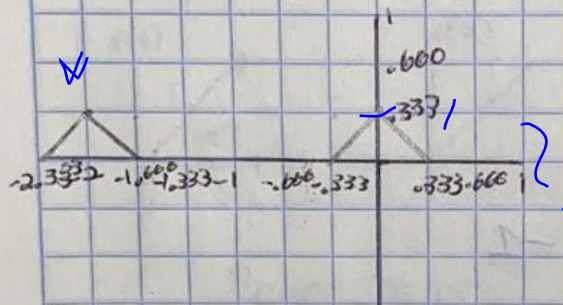 1
.660
.333
-2.333 -2 -1.666 -1.333 -1 -.666 -.333 .333 .666 1